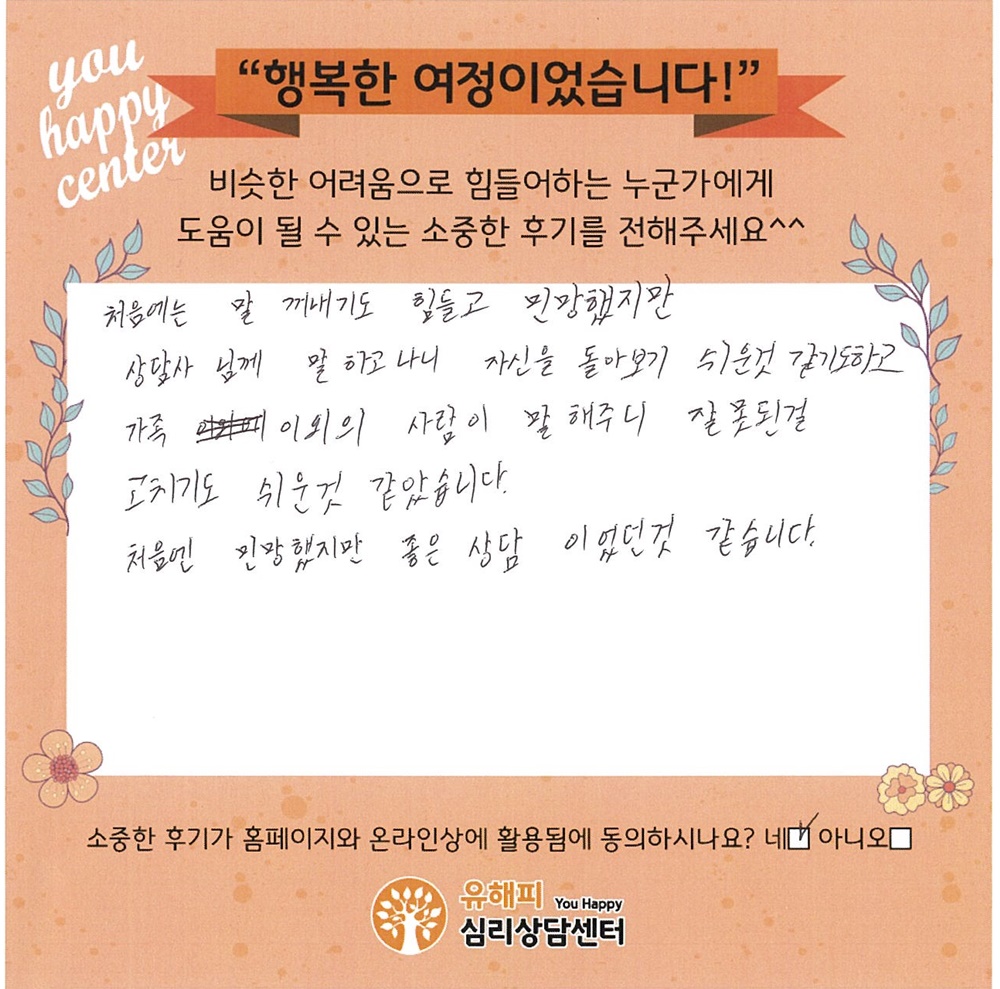 you
happy
center
“행복한 여정이었습니다!”
비슷한 어려움으로 힘들어하는 누군가에게
도움이 될 수 있는 소중한 후기를 전해주세요^^
처음에는 말 꺼내기도 힘들고 민망했지만
상담사 님께 말 하고 나니 자신을 돌아보기 쉬운것 같기도하고
가족 이외의 사람이 말 해주니 잘못된걸
고치기도 쉬운것 같았습니다.
처음엔 민망했지만 좋은 상담 이었던것 같습니다.
소중한 후기가 홈페이지와 온라인상에 활용됨에 동의하시나요? 네 아니오
유해피 You Happy
심리상담센터